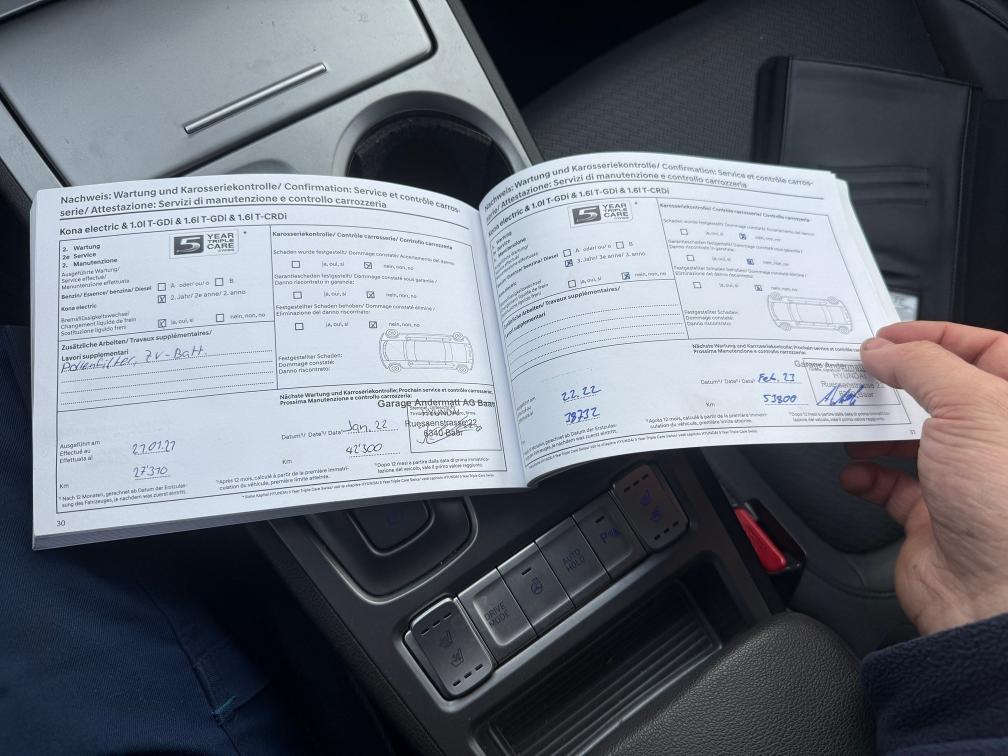 Nachweis: Wartung und Karosseriekontrolle/ Confirmation: Service et contrôle carros-
serie/ Attestazione: Servizi di manutenzione e controllo carrozzeria
Kona electric & 1.0l T-GDi & 1.6l T-GDi & 1.6l T-CRDi
2. Wartung
2e Service
2. Manutenzione
5 YEAR TRIPLE CARE
*
Ausgeführte Wartung/
Service effectué/
Manutenzione effettuata
Benzin/ Essence/ benzina/ Diesel
A oder/ ou/ o B
Kona electric
2. Jahr/ 2e anno/ 2. anno
Bremsflüssigkeitswechsel/
Changement liquide de frein/
Sostituzione liquido freni
ja, oui, si
nein, non, no
Zusätzliche Arbeiten/ Travaux supplémentaires/
Lavori supplementari
Pollenfilter, ZV-Batt.
Ausgeführt am
Effectué au
Effettuata al
27310
Km
¹⁾ Nach 12 Monaten, gerechnet ab Datum der Erstzulas-
sung des Fahrzeuges, je nachdem was zuerst eintritt.
30
Karosseriekontrolle/ Contrôle carrosserie/ Controllo carrozzeria
Schaden wurde festgestellt/ Dommage constaté/ Accertamento del danno
ja, oui, si
nein, non, no
Garantieschaden festgestellt/ Dommage constaté sous garantie/
Danno riscontrato in garanzia:
ja, oui, si
nein, non, no
Festgestellter Schaden behoben/ Dommage constaté éliminé /
Eliminazione del danno riscontrato:
ja, oui, si
nein, non, no
Festgestellter Schaden:
Dommage constaté:
Danno riscontrato:
Nächste Wartung und Karrosseriekontrolle: Prochain service et contrôle carrosserie:
Prossima Manutenzione e controllo carrozzeria:
Datum¹⁾/ Date¹⁾/ Data¹⁾ Jan. 22
Km 42300
Garage Andermatt AG Baar
HYUNDAI
Ruessenstrasse 22
6340 Baar
¹⁾Après 12 mois, calculé à partir de la première immatri-
culation du véhicule, première limite atteinte.
¹⁾Dopo 12 mesi a partire dalla data di prima immatrico-
lazione del veicolo, vale il primo valore raggiunto.
Nachweis: Wartung und Karosseriekontrolle/ Confirmation: Service et contrôle carros-
serie/ Attestazione: Servizi di manutenzione e controllo carrozzeria
Kona electric & 1.0l T-GDi & 1.6l T-GDi & 1.6l T-CRDi
5 YEAR TRIPLE CARE
*
A oder/ ou/ o B
3. Jahr/ 3e anno/ 3. anno
ja, oui, si
nein, non, no
Zusätzliche Arbeiten/ Travaux supplémentaires/
38732
Karosseriekontrolle/ Contrôle carrosserie/ Controllo carrozzeria
Schaden wurde festgestellt/ Dommage constaté/ Accertamento del danno
ja, oui, si
nein, non, no
Garantieschaden festgestellt/ Dommage constaté sous garantie/
Danno riscontrato in garanzia:
ja, oui, si
nein, non, no
Festgestellter Schaden behoben/ Dommage constaté éliminé /
Eliminazione del danno riscontrato:
ja, oui, si
nein, non, no
Festgestellter Schaden:
Dommage constaté:
Danno riscontrato:
Nächste Wartung und Karrosseriekontrolle: Prochain service et contrôle
Prossima Manutenzione e controllo carrozzeria:
Datum¹⁾/ Date¹⁾/ Data¹⁾ Feb. 23
Km 53800
Garage Andermatt
HYUNDAI
Ruessenstrasse 22
Baar
¹⁾Après 12 mois, calculé à partir de la première immatri-
culation du véhicule, première limite atteinte.
¹⁾Dopo 12 mesi a partire dalla data di prima immatrico-
lazione del veicolo, vale il primo valore raggiunto.
31
DRIVE
MODE
AUTO
HOLD
P